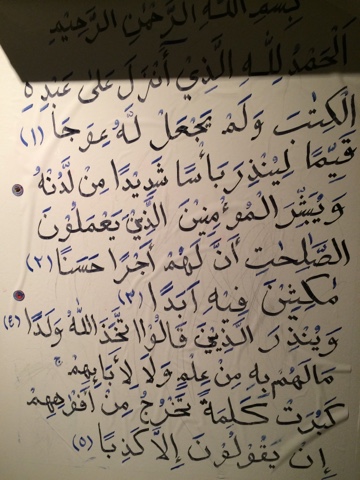 بِسْمِ اللهِ الرَّحْمٰنِ الرَّحِيْمِ
اَلْحَمْدُ لِلّٰهِ الَّذِيْ أَنْزَلَ عَلٰى عَبْدِهِ
الْكِتٰبَ وَلَمْ يَجْعَلْ لَهُ عِوَجًا (١)
قَيِّمًا لِيُنْذِرَ بَأْسًا شَدِيْدًا مِنْ لَدُنْهُ
وَيُبَشِّرَ الْمُؤْمِنِيْنَ الَّذِيْنَ يَعْمَلُوْنَ
الصّٰلِحٰتِ أَنَّ لَهُمْ اَجْرًا حَسَنًا (٢)
مٰكِثِيْنَ فِيْهِ اَبَدًا (٣)
وَيُنْذِرَ الَّذِيْنَ قَالُوْا اتَّخَذَ اللهُ وَلَدًا (٤)
مَا لَهُمْ بِهِ مِنْ عِلْمٍ وَلَا لِأٰبَائِهِمْ ج
كَبُرَتْ كَلِمَةً تَخْرُجُ مِنْ اَفْوٰهِهِمْ
إِنْ يَقُوْلُوْنَ إِلَّا كَذِبًا (٥)